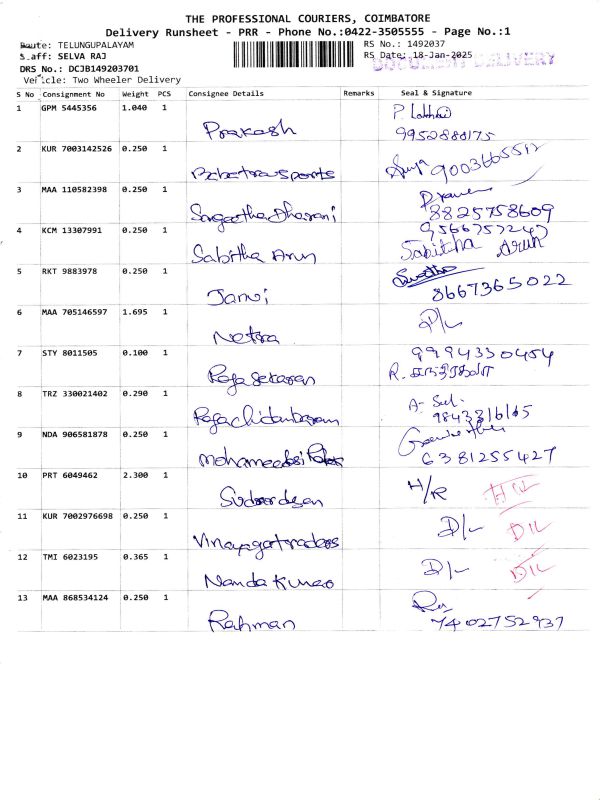 THE PROFESSIONAL COURIERS, COIMBATORE
Delivery Runsheet - PRR - Phone No.:0422-3505555 - Page No.:1
Route: TELUNGUPALAYAM
RS No.: 1492037
Staff: SELVA RAJ
RS Date: 18-Jan-2025
DOCUMENT DELIVERY
DRS No.: DCJB149203701
Vehicle: Two Wheeler Delivery
S No Consignment No Weight PCS Consignee Details Remarks Seal & Signature
1 GPM 5445356 1.040 1
Prakash
9952880175
2 KUR 7003142526 0.250 1
9003665512
3 MAA 110582398 0.250 1
Sangeetha Dharani
8825758609
4 KCM 13307991 0.250 1
9566757247
Sabitha Arun
Sabitha Arun
5 RKT 9883978 0.250 1
8667365022
6 MAA 705146597 1.695 1
D/L
Netra
7 STY 8011505 0.100 1
9994330454
Rajasekaran
8 TRZ 330021402 0.290 1
Rajachidambaram
9 NDA 906581878 0.250 1
6381255427
10 PRT 6049462 2.300 1
H/R
11 KUR 7002976698 0.250 1
D/L D/L
Vinayagatraders
12 TMI 6023195 0.365 1
D/L D/L
Nanda Kumar
13 MAA 868534124 0.250 1
Rahman
7402752937